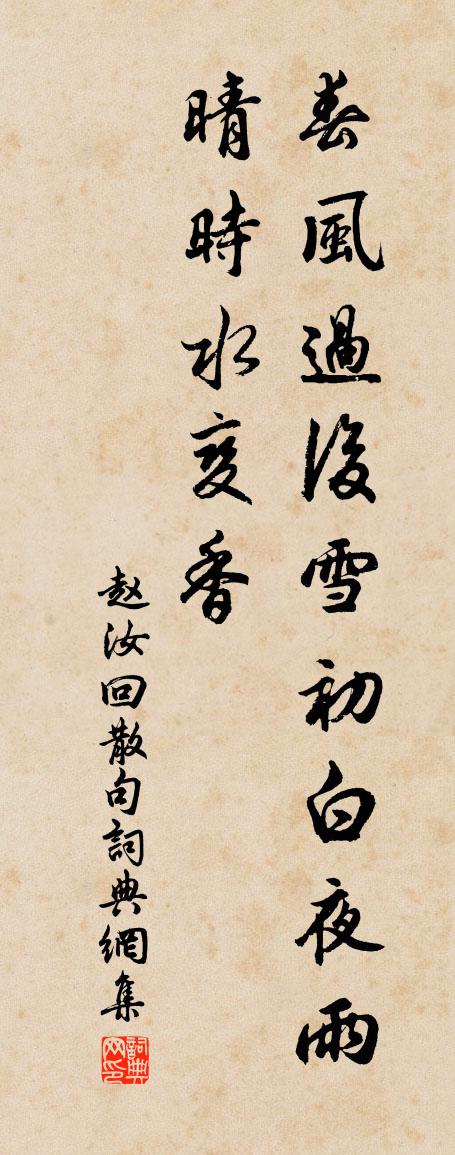 春風過後雪初白夜雨
晴時水變香
赵汝回散句詞典網集
詞典网印